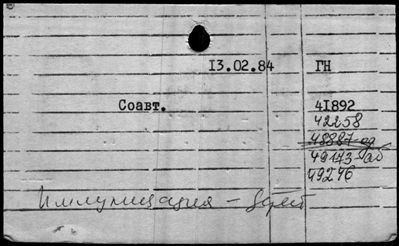 13.02.84 ГН
Соавт. 41892
42258
48887-ад
49143-аб
49246
Иммунизация - детей